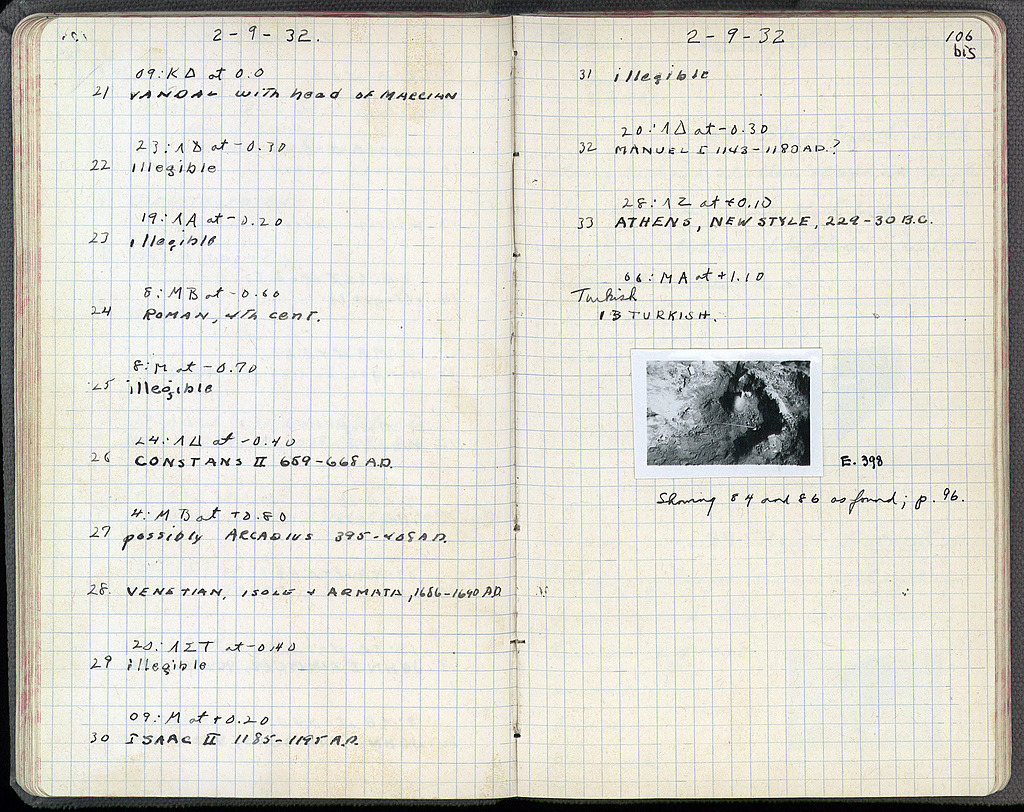 2-9-32.
09:ΚΔ at 0.0
21 VANDAL with head OF MARCIAN
23:ΛΔ at -0.30
22 illegible
19:ΛΑ at -0.20
23 illegible
8:ΜΒ at -0.60
24 ROMAN, 4th cent.
8:Μ at -0.70
25 illegible
24:ΛΔ at -0.40
26 CONSTANS II 659-668 A.D.
4:ΜΒ at +0.80
27 possibly ARCADIUS 395-408 A.D.
28. VENETIAN, ISOLE + ARMATA, 1686-1690 AD.
20:ΛΣΤ at -0.40
29 illegible
09:Μ at +0.20
30 ISAAC II 1185-1195 A.D.
2-9-32
106
bis
31 illegible
20:ΛΔ at -0.30
32 MANUEL I 1143-1180 AD.?
28:ΛΖ at +0.10
33 ATHENS, NEW STYLE, 229-30 B.C.
66:ΜΑ at +1.10
Turkish
13 TURKISH.
E. 398
Showing 84 and 86 as found; p. 96.